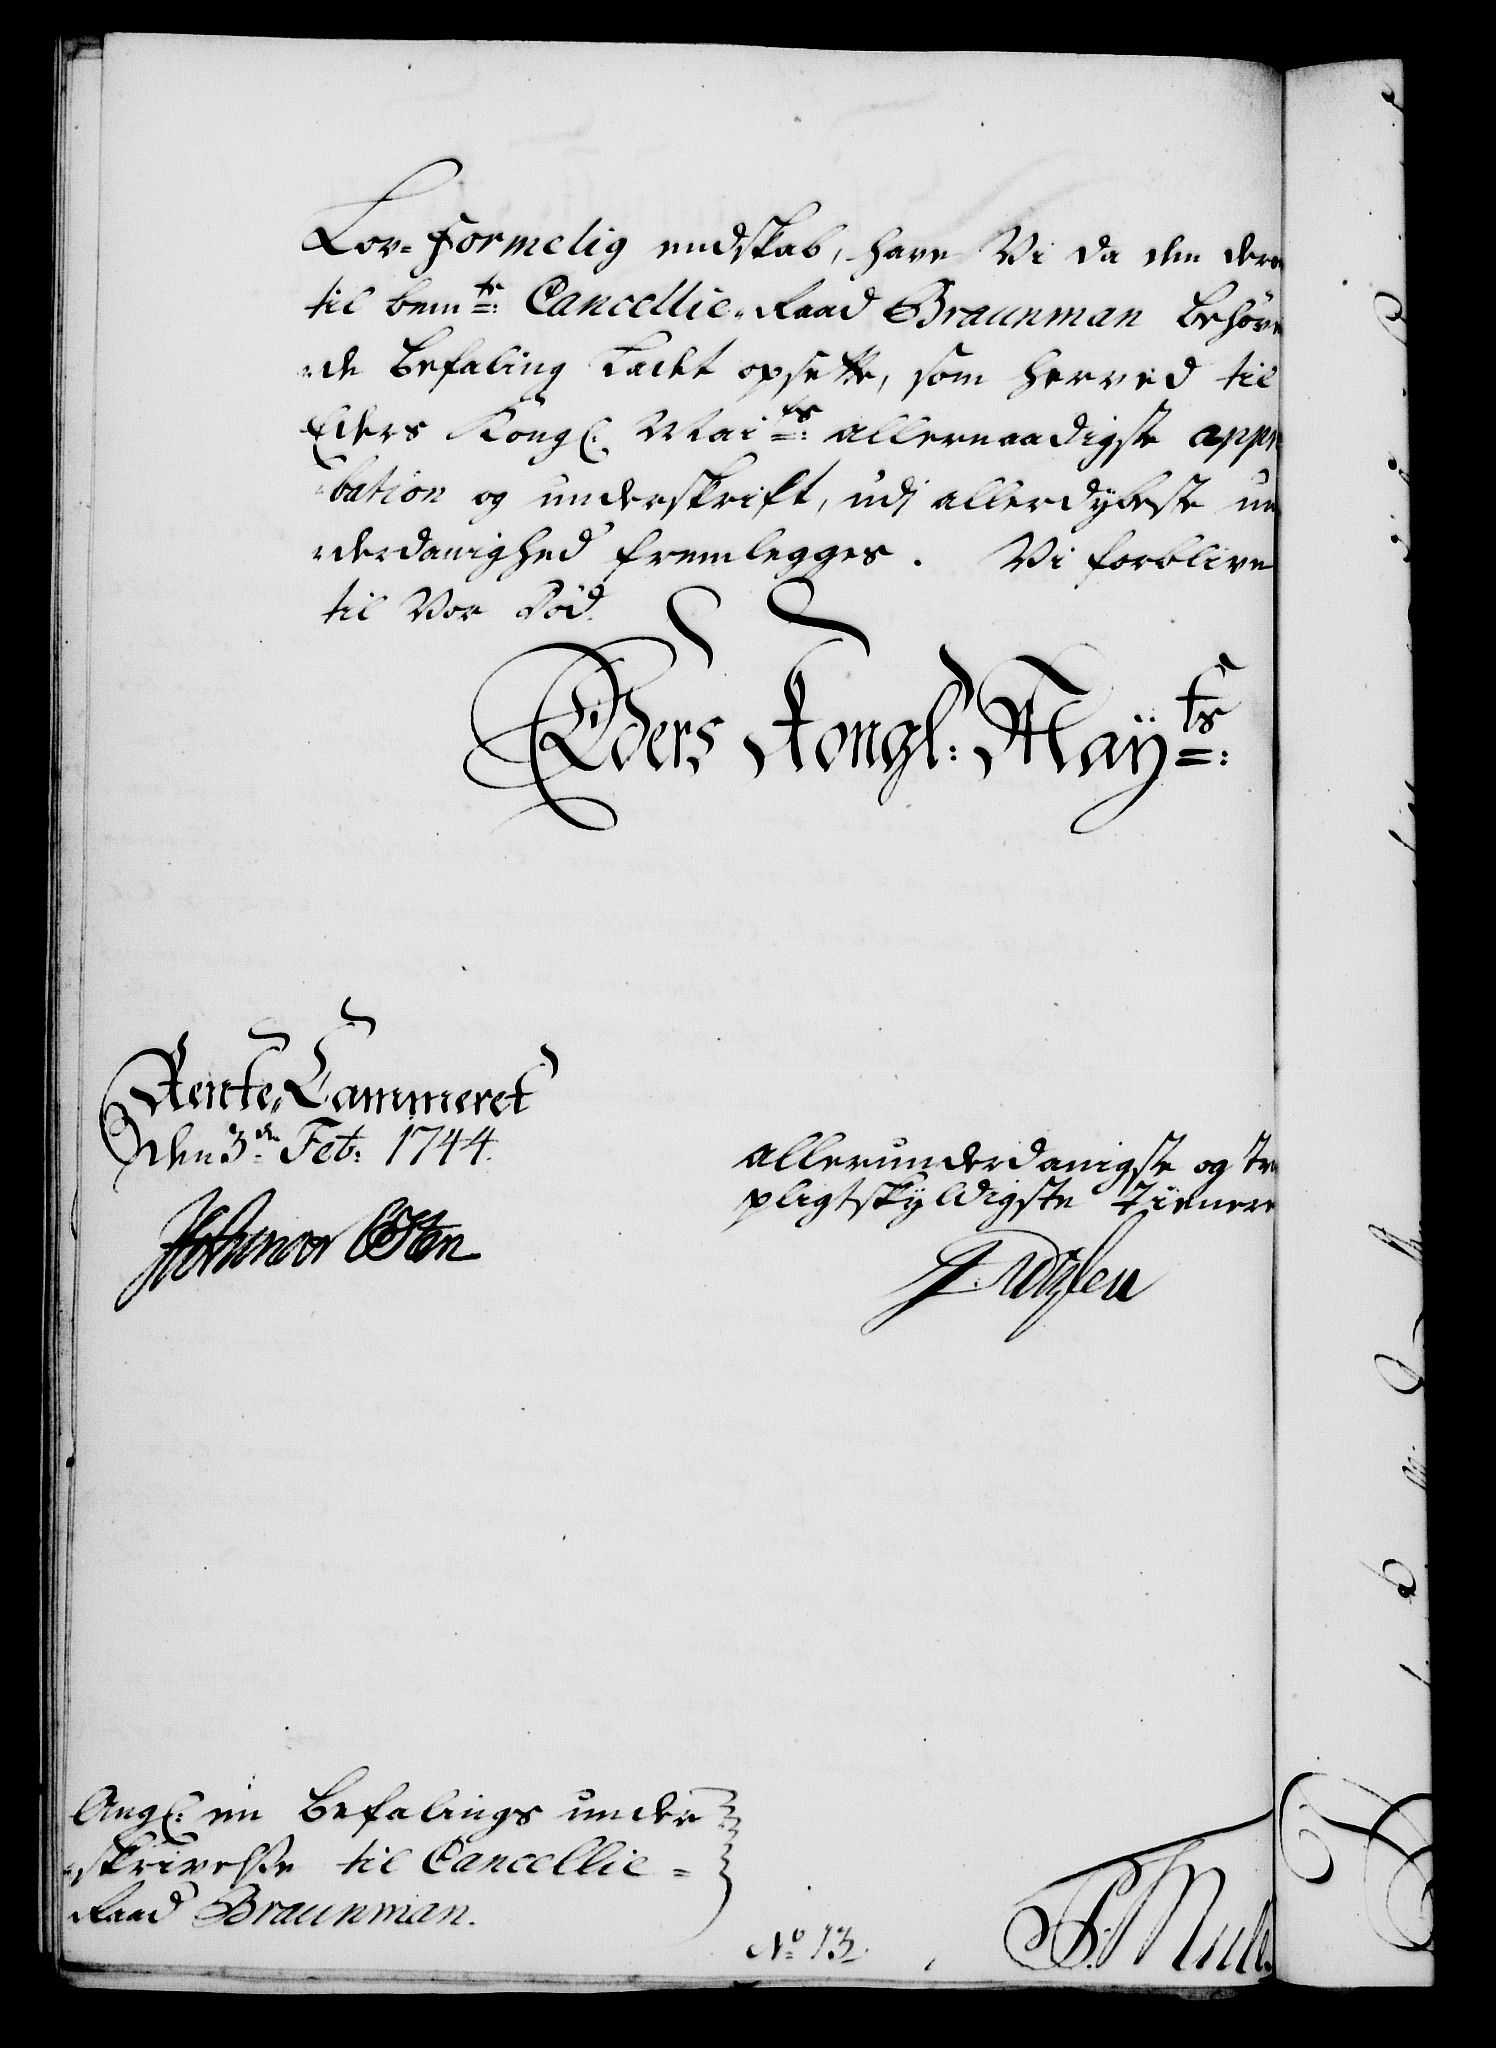 Lov-formelig endskab, have Vi da den der
til bemte: Cancellie-Raad Braunman behøve
de Befaling ladet opsette, som herved til
Eders Kongl: Maits: allernaadigste appro
bation og underskrift, udj allerdybeste un
derdanighed fremlegges. Vi forblive
til Vor Død.
Eders Kongl: Mayts:
Rente-Cammeret
den 3de Feb: 1744.
allerunderdanigste og tro
pligtskyldigste Tienere
Angl: en Befalings under
skrivelse til Cancellie-
Raad Braunman.
No 13.